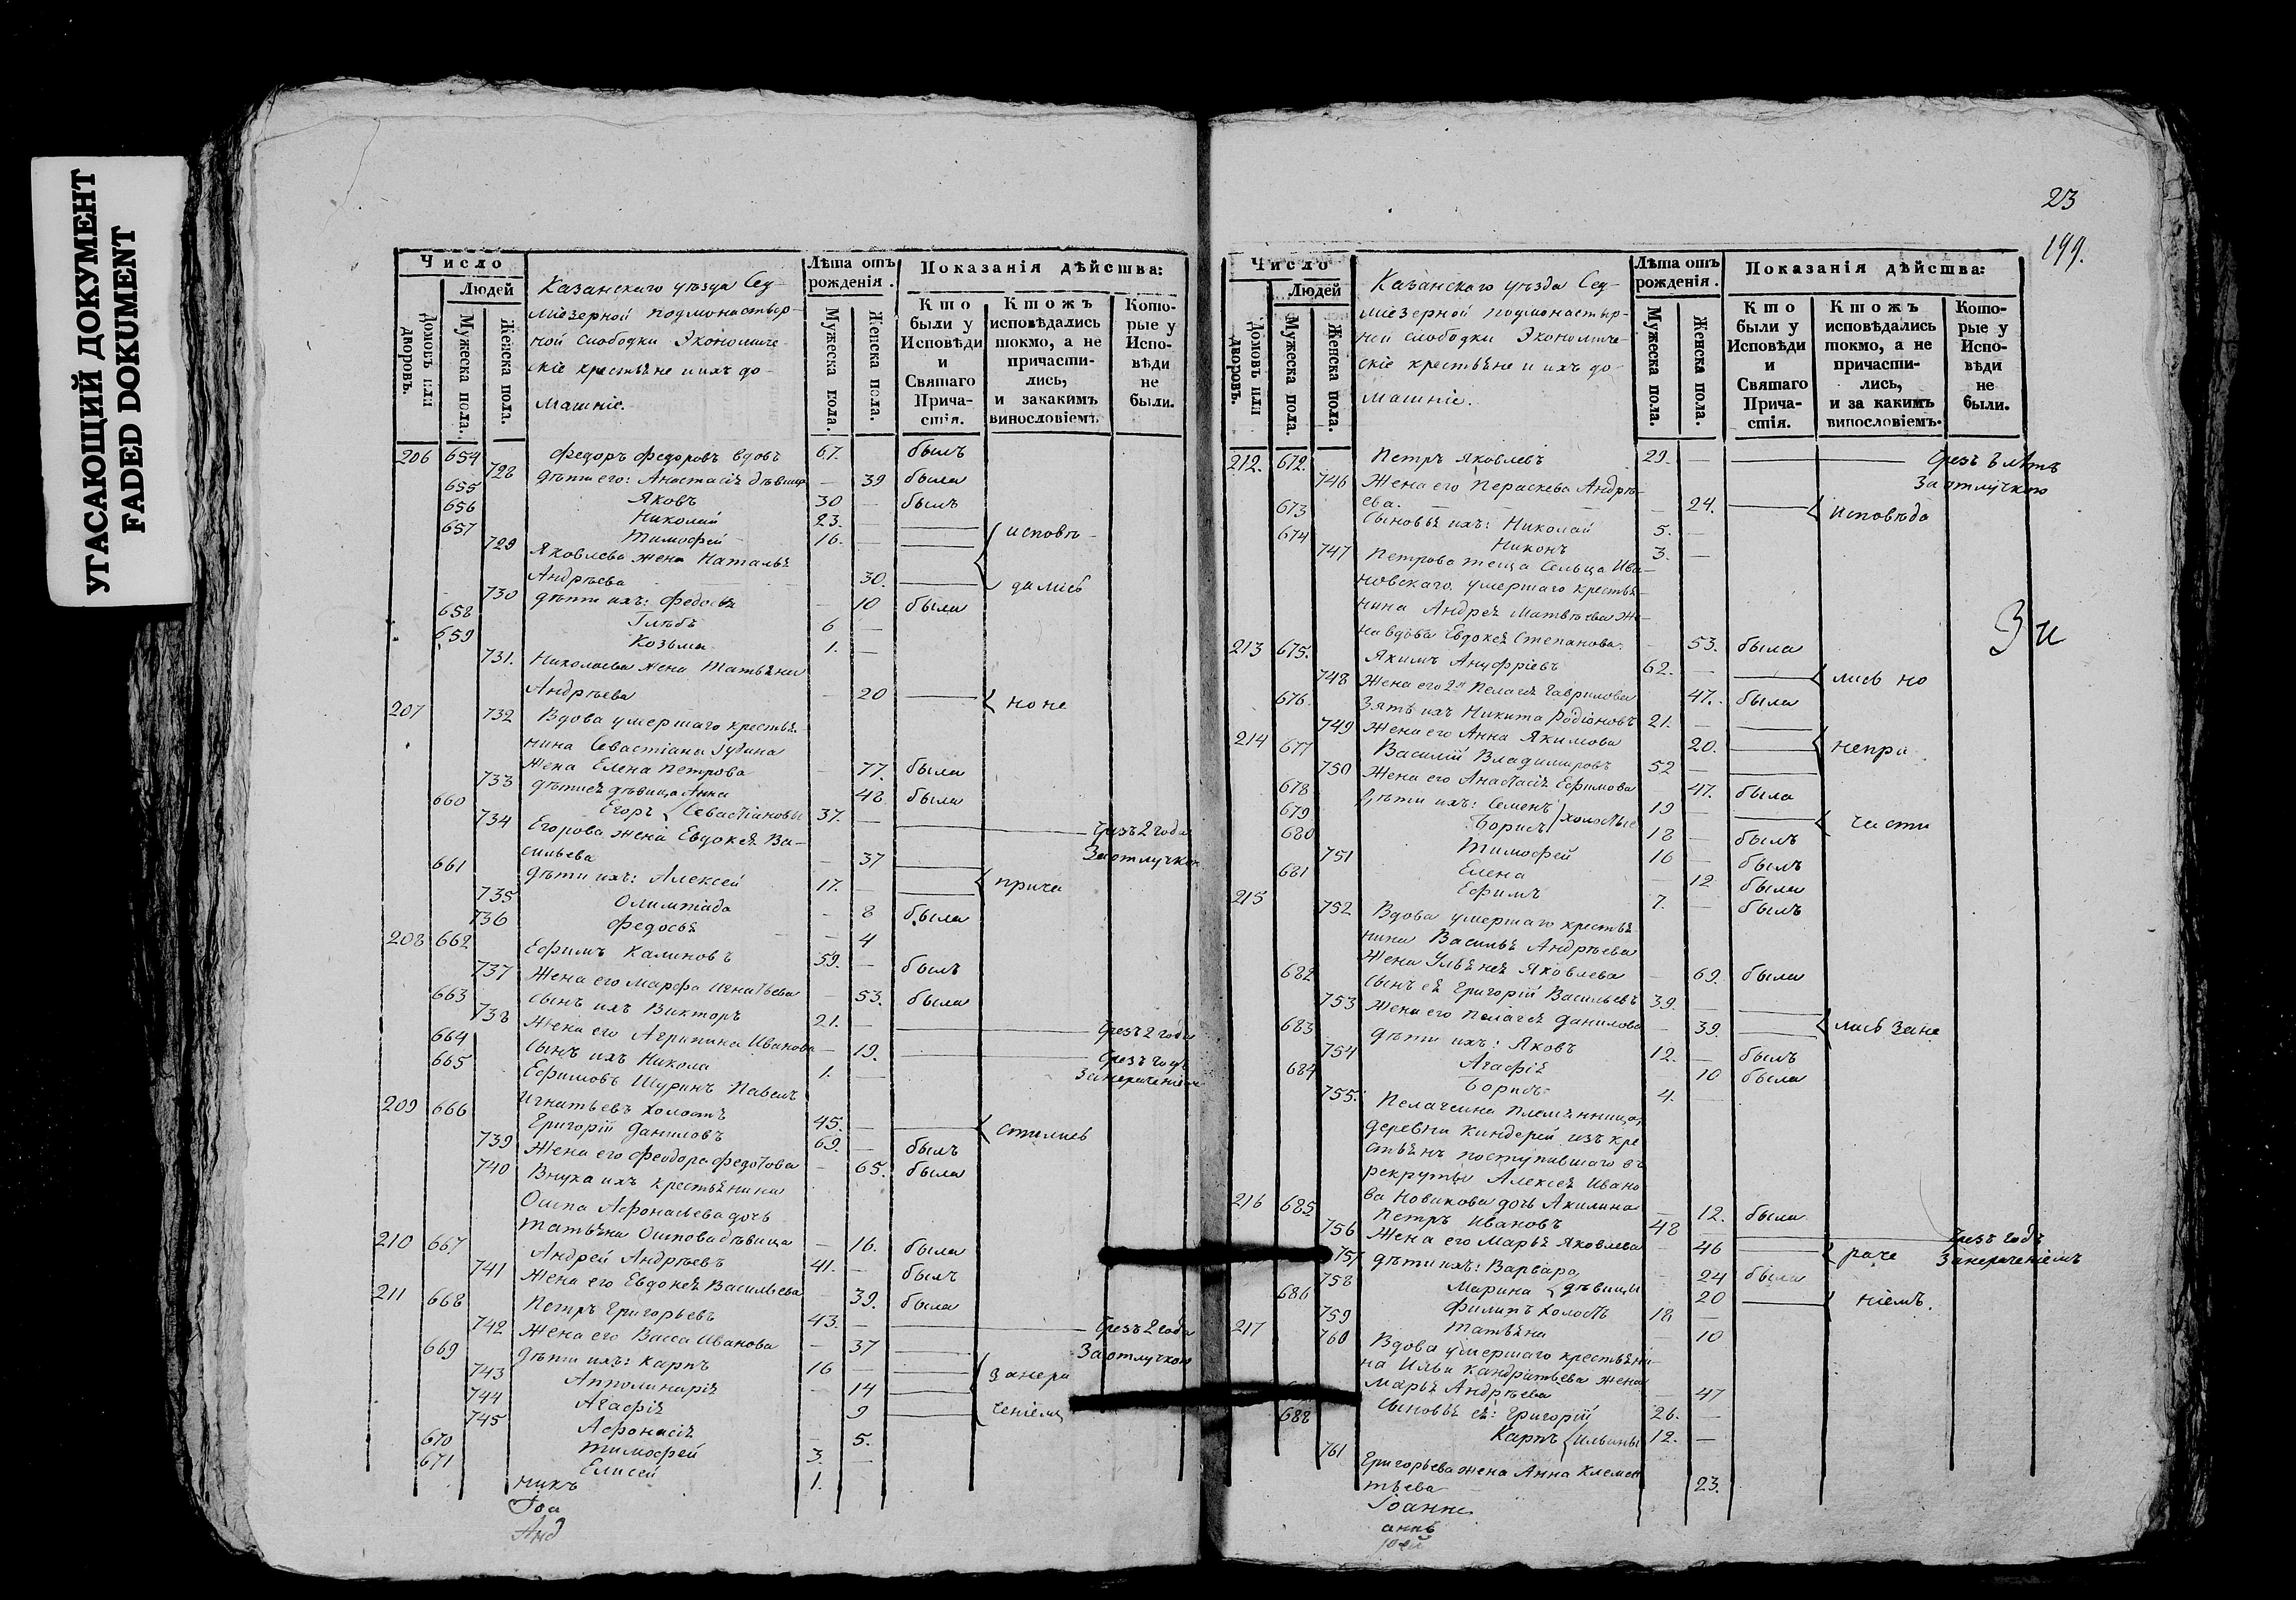 УГАСАЮЩИЙ ДОКУМЕНТ
FADED DOKUMENT
Число
Людей
Домовъ или дворовъ.
Мужеска пола.
Женска пола.
Казанскаго уѣзда Сед-
міезерной подмонастыр-
ной слободки Экономиче-
скіе крестьяне и ихъ до-
машніе.
Лѣта отъ рожденія.
Мужеска пола.
Женска пола.
Показанія дѣйства:
Кто были у Исповѣди и Святаго Прича-стія.
Ктожъ исповѣдались токмо, а не причасти-лись, и закакимъ винословіемъ.
Кото-рые у Испо-вѣди не были.
206 654 Федоръ Федоровъ вдовъ 67. былъ
728 дѣти его: Анастасія дѣвица — 39 была
655 Яковъ 30 — былъ
656 Николай 23.
657 Тимофей 16. — исповѣ-
729 Яковлева жена Наталья
Андрѣева 30. дались
730 дѣти ихъ: Федосья — 10 была
658 Глѣбъ 6 —
659 Козьма 1. —
731. Николаева жена Татьяна
Андрѣева — 20 но не
207 732 Вдова умершаго крестья-
нина Севастіана Гудина
жена Елена Петрова — 77. была
733 дѣти ея дѣвица Анна 48 была
660 Егоръ Севастіановы 37. — Чрезъ 2 года
734 Егорова жена Евдокея Ва-
сильева — 37 За отлучкою
661 дѣти ихъ: Алексей 17. — прича
735 Олимпіада — 8 была
736 Федосья — 4
208 662 Ефимъ Калиновъ 59. — былъ
737 Жена его Марфа Игнатьева — 53. была
663 сынъ ихъ Викторъ 21. — Чрезъ 2 года
738 Жена его Агрипина Иванова — 19. Чрезъ годъ
664 сынъ ихъ Никола 1. — За нерачениемъ
665 Ефимовъ Шуринъ Павелъ
Игнатьевъ холостъ 45. — стились
209 666 Григорій Даниловъ 69. — былъ
739 Жена его Феодора Федотова — 65. была
740 Внука ихъ крестьянина
Осипа Афонасьева дочь
Татьяна Осипова дѣвица — 16. была
210 667 Андрей Андрѣевъ 41. — былъ
741 Жена его Евдокея Васильева — 39. была
211 668 Петръ Григорьевъ 43. — Чрезъ 2 года
742 Жена его Васса Иванова — 37 За отлучкою
669 дѣти ихъ: Карпъ 16 — за нера
743 Апполинарія — 14
744 Агафія 9 ченіемъ
745 Афонасія — 5.
670 Тимофей 3. —
671 Елисей 1.
никъ
Іоа
Анд
23
199.
Число
Людей
Домовъ или дворовъ.
Мужеска пола.
Женска пола.
Казанскаго уѣзда Сед-
міезерной подмонастыр-
ной слободки Экономиче-
скіе крестьяне и ихъ до-
машніе.
Лѣта отъ рожденія.
Мужеска пола.
Женска пола.
Показанія дѣйства:
Кто были у Исповѣди и Святаго Прича-стія.
Ктожъ исповѣдались токмо, а не причасти-лись, и за какимъ винословіемъ.
Кото-рые у Испо-вѣди не были.
212. 672. Петръ Яковлевъ 29. — Чрезъ 3 лѣтъ
746 Жена его Параскева Андрѣ- За отлучкою
ева. — 24. исповѣда
673 сыновья ихъ: Николай 5. —
674 Никонъ 3. —
747 Петрова теща Сельца Ива-
новскаго умершаго крестья-
нина Андрея Матвѣева же-
на вдова Евдокея Степанова — 53. была
213 675. Якимъ Ануфріевъ 62. — лись но
748 Жена его 2я Пелагея Гаврилова 47. была
676 Зять ихъ Никита Родіоновъ 21. —
749 Жена его Анна Якимова 20. непри
214 677 Василій Владимировъ 52 —
750 Жена его Анастасія Ефимова — 47. была
678 Дѣти ихъ: Семенъ 19 — части
679 Борисъ холостые 18 — былъ
680 Тимофей 16 — былъ
751 Елена — 12 была
681 Ефимъ 7. — былъ
215 752 Вдова умершаго крестья-
нина Василья Андрѣева
жена Ульянея Яковлева — 69. была
682 сынъ ея Григорій Васильевъ 39. —
753 Жена его Пелагея Данилова — 39. лись за не
683 дѣти ихъ: Яковъ 12. — былъ
754 Агафія 10 была
684 Борисъ 4. —
755. Пелагеина племянница
деревни Киндерей изъ кре
стьянъ поступившаго въ
рекруты Алексея Ивано
ва Новикова дочь Акилина — 12. была
216 685. Петръ Ивановъ 48 — Чрезъ годъ
756 Жена его Марья Яковлева — 46 раче За нераченіемъ
757 дѣти ихъ: Варвара — 24 была
758 Марина дѣвицы 20 ніемъ.
686 Филипъ холостъ 18 —
759 Татьяна — 10
217 760 Вдова умершаго крестьяни-
на Ильи Кандратьева жена
Марья Андрѣева — 47
сыновья ея: Григорій 26. —
688 Карпъ Ильины 12. —
761 Григорьева жена Анна Клемен
тьева 23.
Іоанне
аннъ
Зи